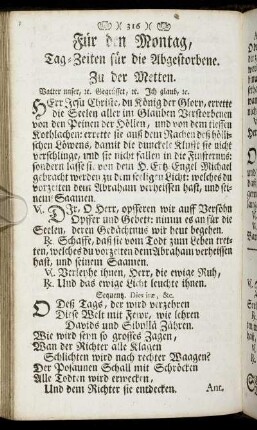 316
Für den Montag,
Tag-Zeiten für die Abgestorbene.
Zu der Metten.
Vatter unser, ꝛc. Gegrüsset, ꝛc. Ich glaub, ꝛc.
HErr Jesu Christe, du König der Glory, errette
die Seelen aller im Glauben Verstorbenen
von den Peinen der Höllen, und von dem tieffen
Kothlachen: errette sie auß dem Rachen deß höllischen
Löwens, damit die dunckele Klufft sie nicht
verschlinge, und sie nicht fallen in die Finsternus:
sondern lasse sie von dem H. Ertz Engel Michael
gebracht werden zu dem heiligen Liecht welches du
vorzeiten dem Abraham verheissen hast, und seinem
Saamen.
V. Dir, O Herr, opfferen wir auff Versöhn
Opffer und Gebett: nimm es an für die
Seelen, deren Gedächtnus wir heut begehen.
R. Schaffe, daß sie vom Todt zum Leben tretten,
welches du vorzeiten dem Abraham verheissen
hast, und seinem Saamen.
V. Verleyhe ihnen, Herr, die ewige Ruh,
R. Und das ewige Licht leuchte ihnen.
Sequentz. Dies iræ, &c.
O Deß Tags, der wird verzehren
Diese Welt mit Fewr, wie lehren
Davids und Sibyllä Zähren.
Wie wird seyn so grosses Zagen,
Wan der Richter alle Klagen
Schlichten wird nach rechter Waagen?
Der Posaunen Schall mit Schröcken
Alle Todten wird erwecken,
Und dem Richter sie entdecken.
Ant.